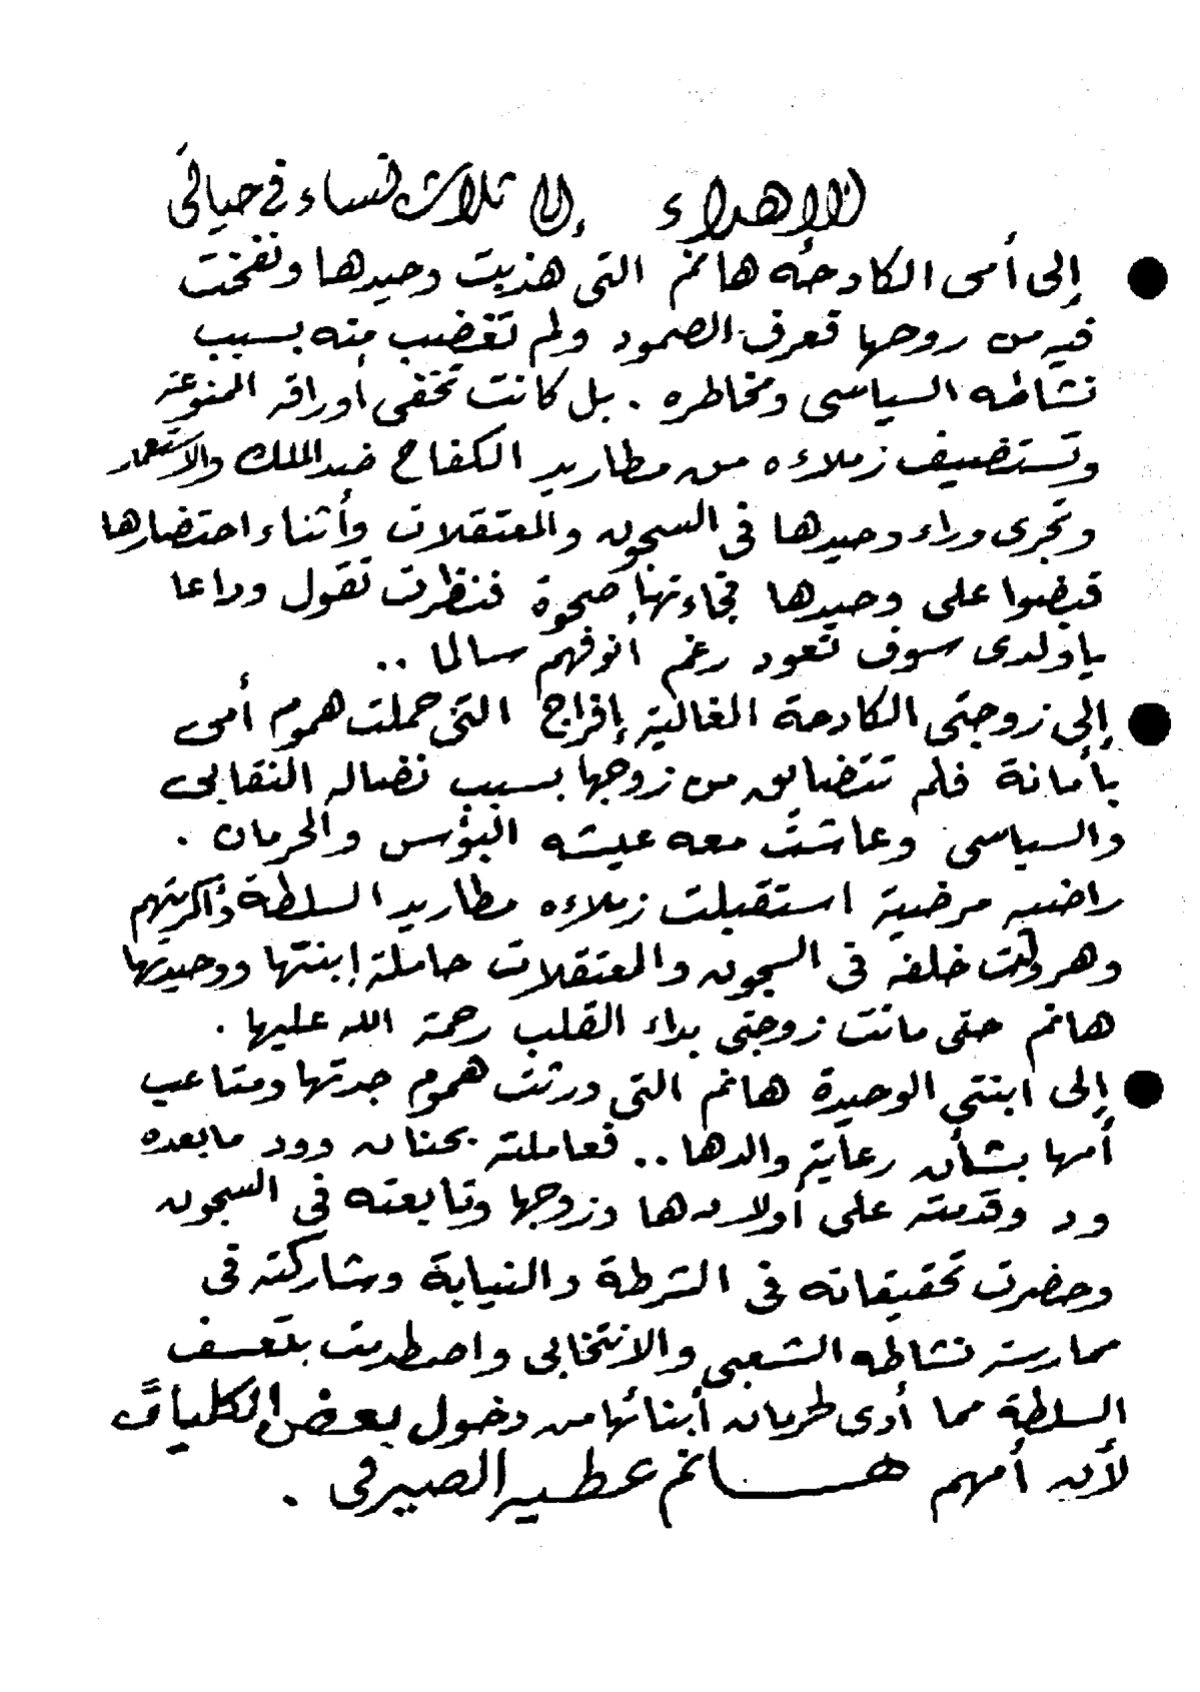 الإهداء إلى ثلاث نساء في حياتي
● إلى أمى الكادحه هانم التى هذبت وحيدها ونفخت
فيه من روحها فعرف الصمود ولم تغضب منه بسبب
نشاطه السياسى ومخاطره . بل كانت تخفى أوراقه الممنوعة
وتستضيف زملاءه من مطاريد الكفاح ضد الملك والاستعمار
وتجرى وراء وحيدها فى السجون والمعتقلات وأثناء احتضارها
قبضوا على وحيدها فجاءتها صحوة فنظرت تقول وداعا
ياولدى سوف تعود رغم أنوفهم سالما ..
● إلى زوجتى الكادحة الغالية إفراج التى حملت هموم أمى
بأمانة فلم تتضايق من زوجها بسبب نضاله النقابى
والسياسى وعاشت معه عيشه البؤس والحرمان .
راضيه مرضية استقبلت زملاءه مطاريد السلطة وأكرمتهم
وهرولت خلفه فى السجون والمعتقلات حاملة إبنتها ووحيدتها
هانم حتى ماتت زوجتى بداء القلب رحمة الله عليها .
● إلى ابنتي الوحيدة هانم التى ورثت هموم جدتها ومتاعب
أمها بشأن رعاية والدها .. فعاملته بحنان وود مابعده
ود وقدمته على أولادها وزوجها وتابعته فى السجون
وحضرت تحقيقاته فى الشرطة والنيابة وشاركته فى
ممارسة نشاطه الشعبى والانتخابى واصطدمت بتعسف
السلطة مما أدى لحرمان أبنائها من دخول بعض الكليات
لأن أمهم هانم عطيه الصيرفى .